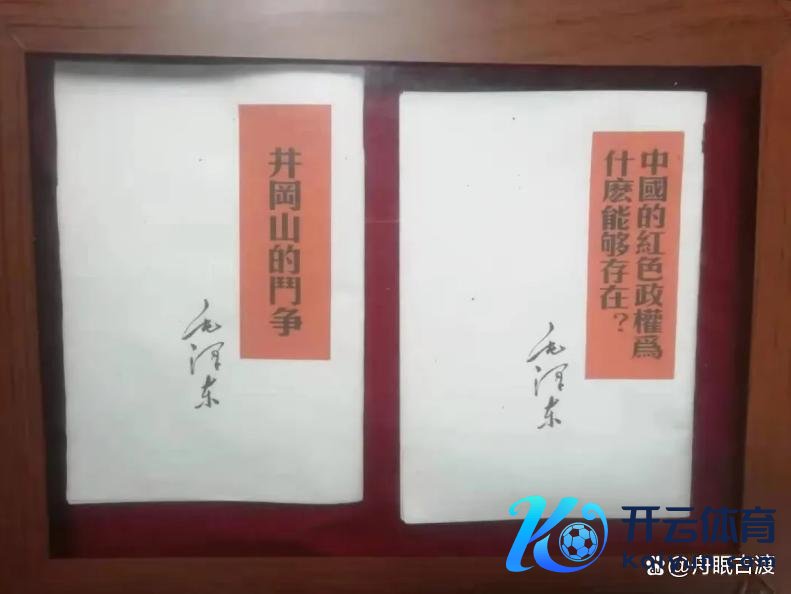 井岡山的鬥爭
毛泽东
中國的紅色政權爲
什麽能够存在?
毛泽东
开云体育
@舟眠古渡